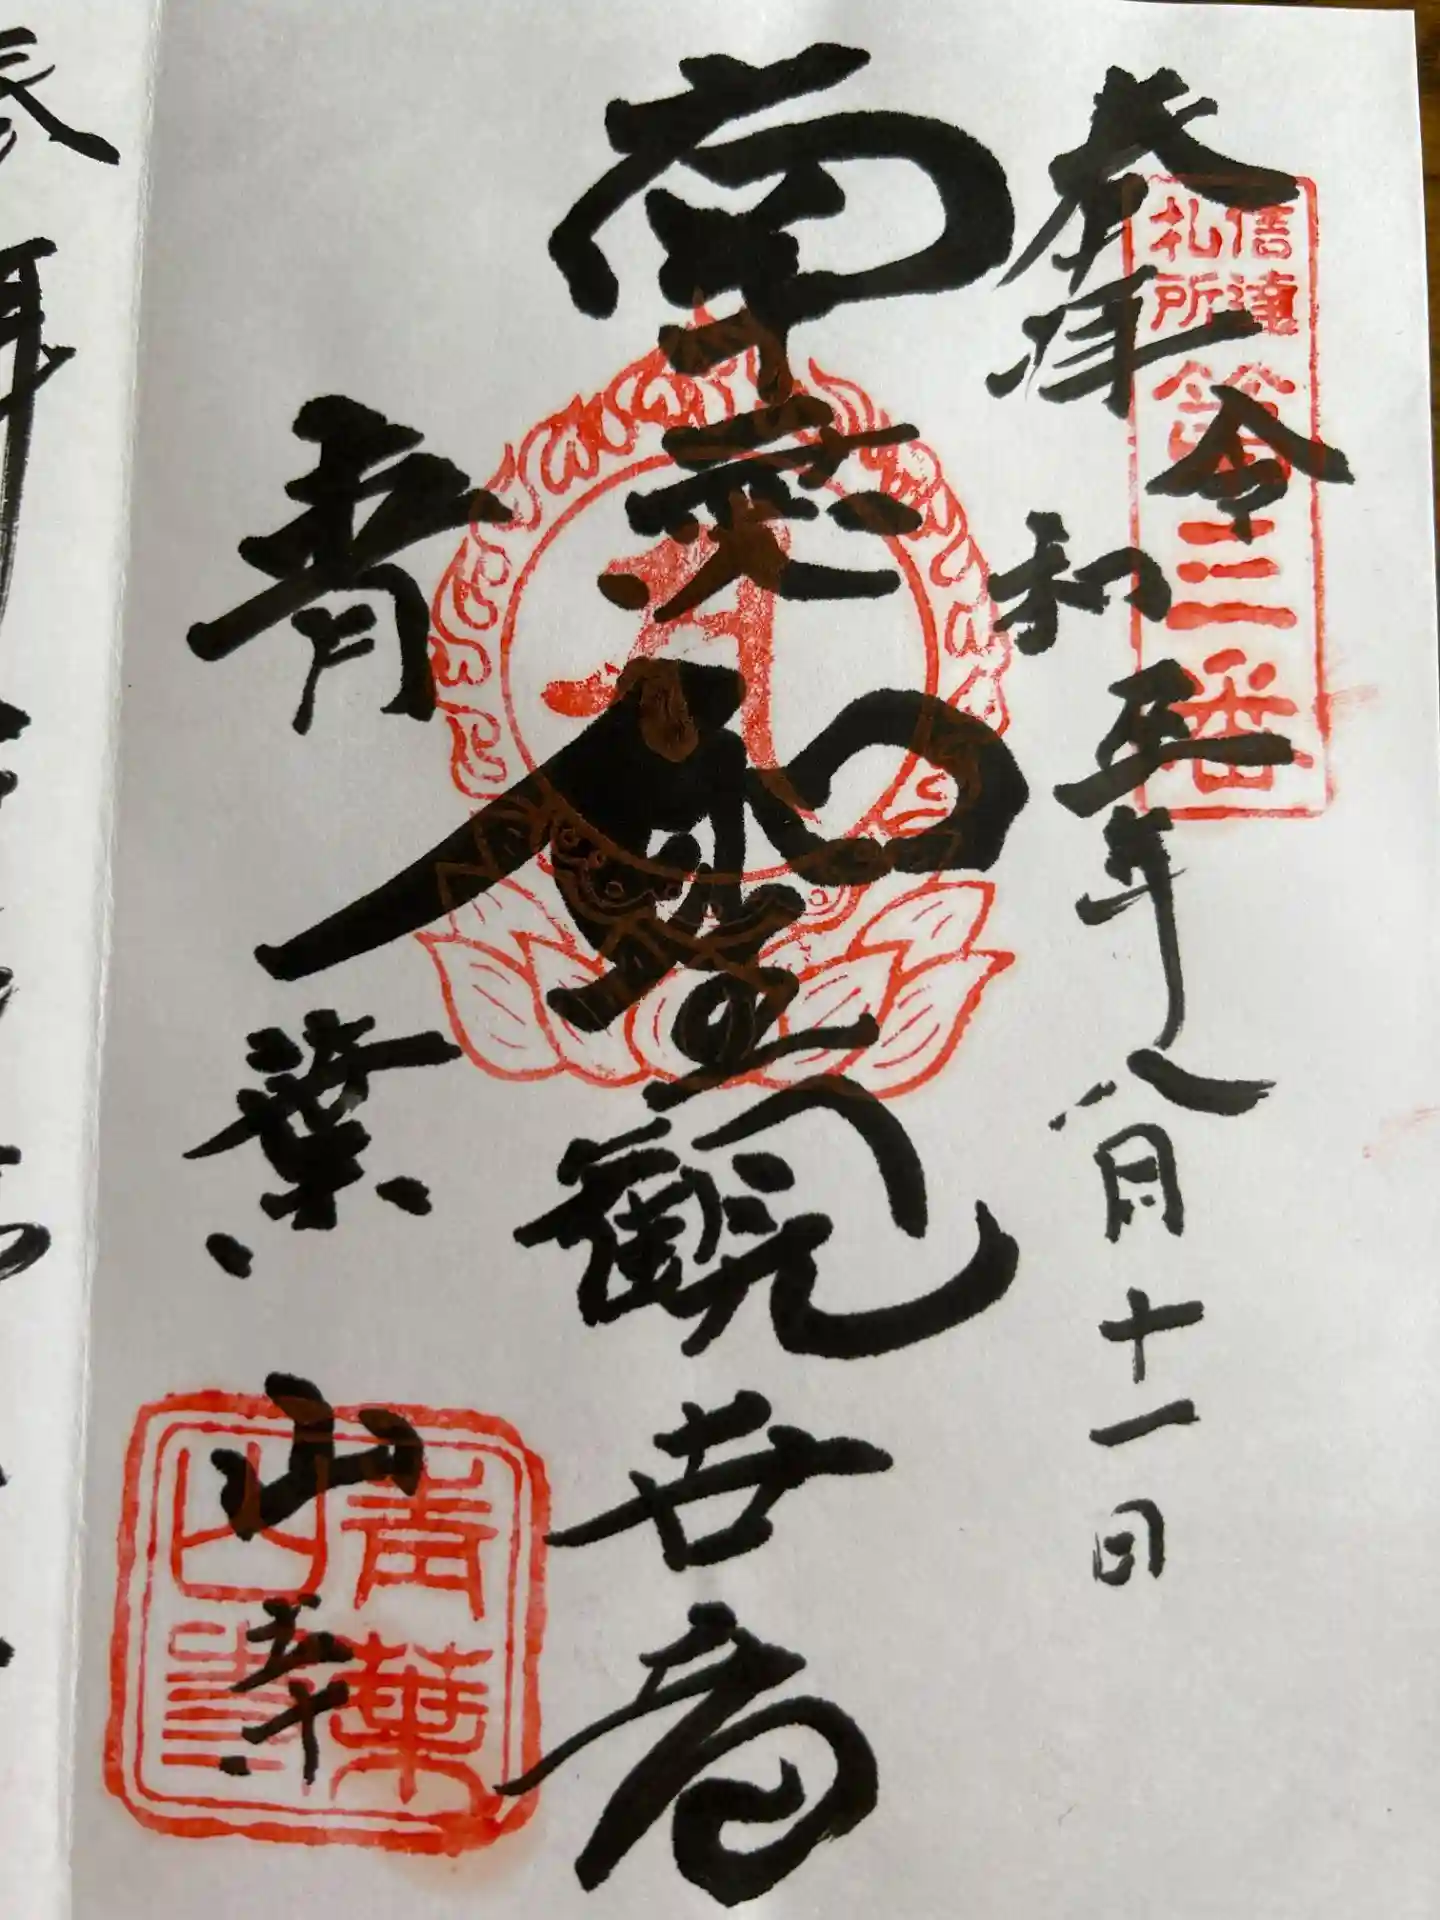 奉拝
令和五年八月十一日
信達
札所
第三番
南無聖観世音
青葉山寺
青葉
山寺